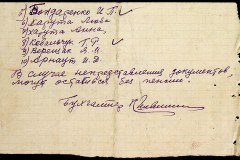 5) Бондаренко И. Г.
6) Харута Люба
7) Харута Анна,
8) Ковальчук Г. Р.
9) Верещак А. П.
10) Арнаут И. Д.
В случае непредставления документов,
могут остаться без пенсии.
Бухгалтер